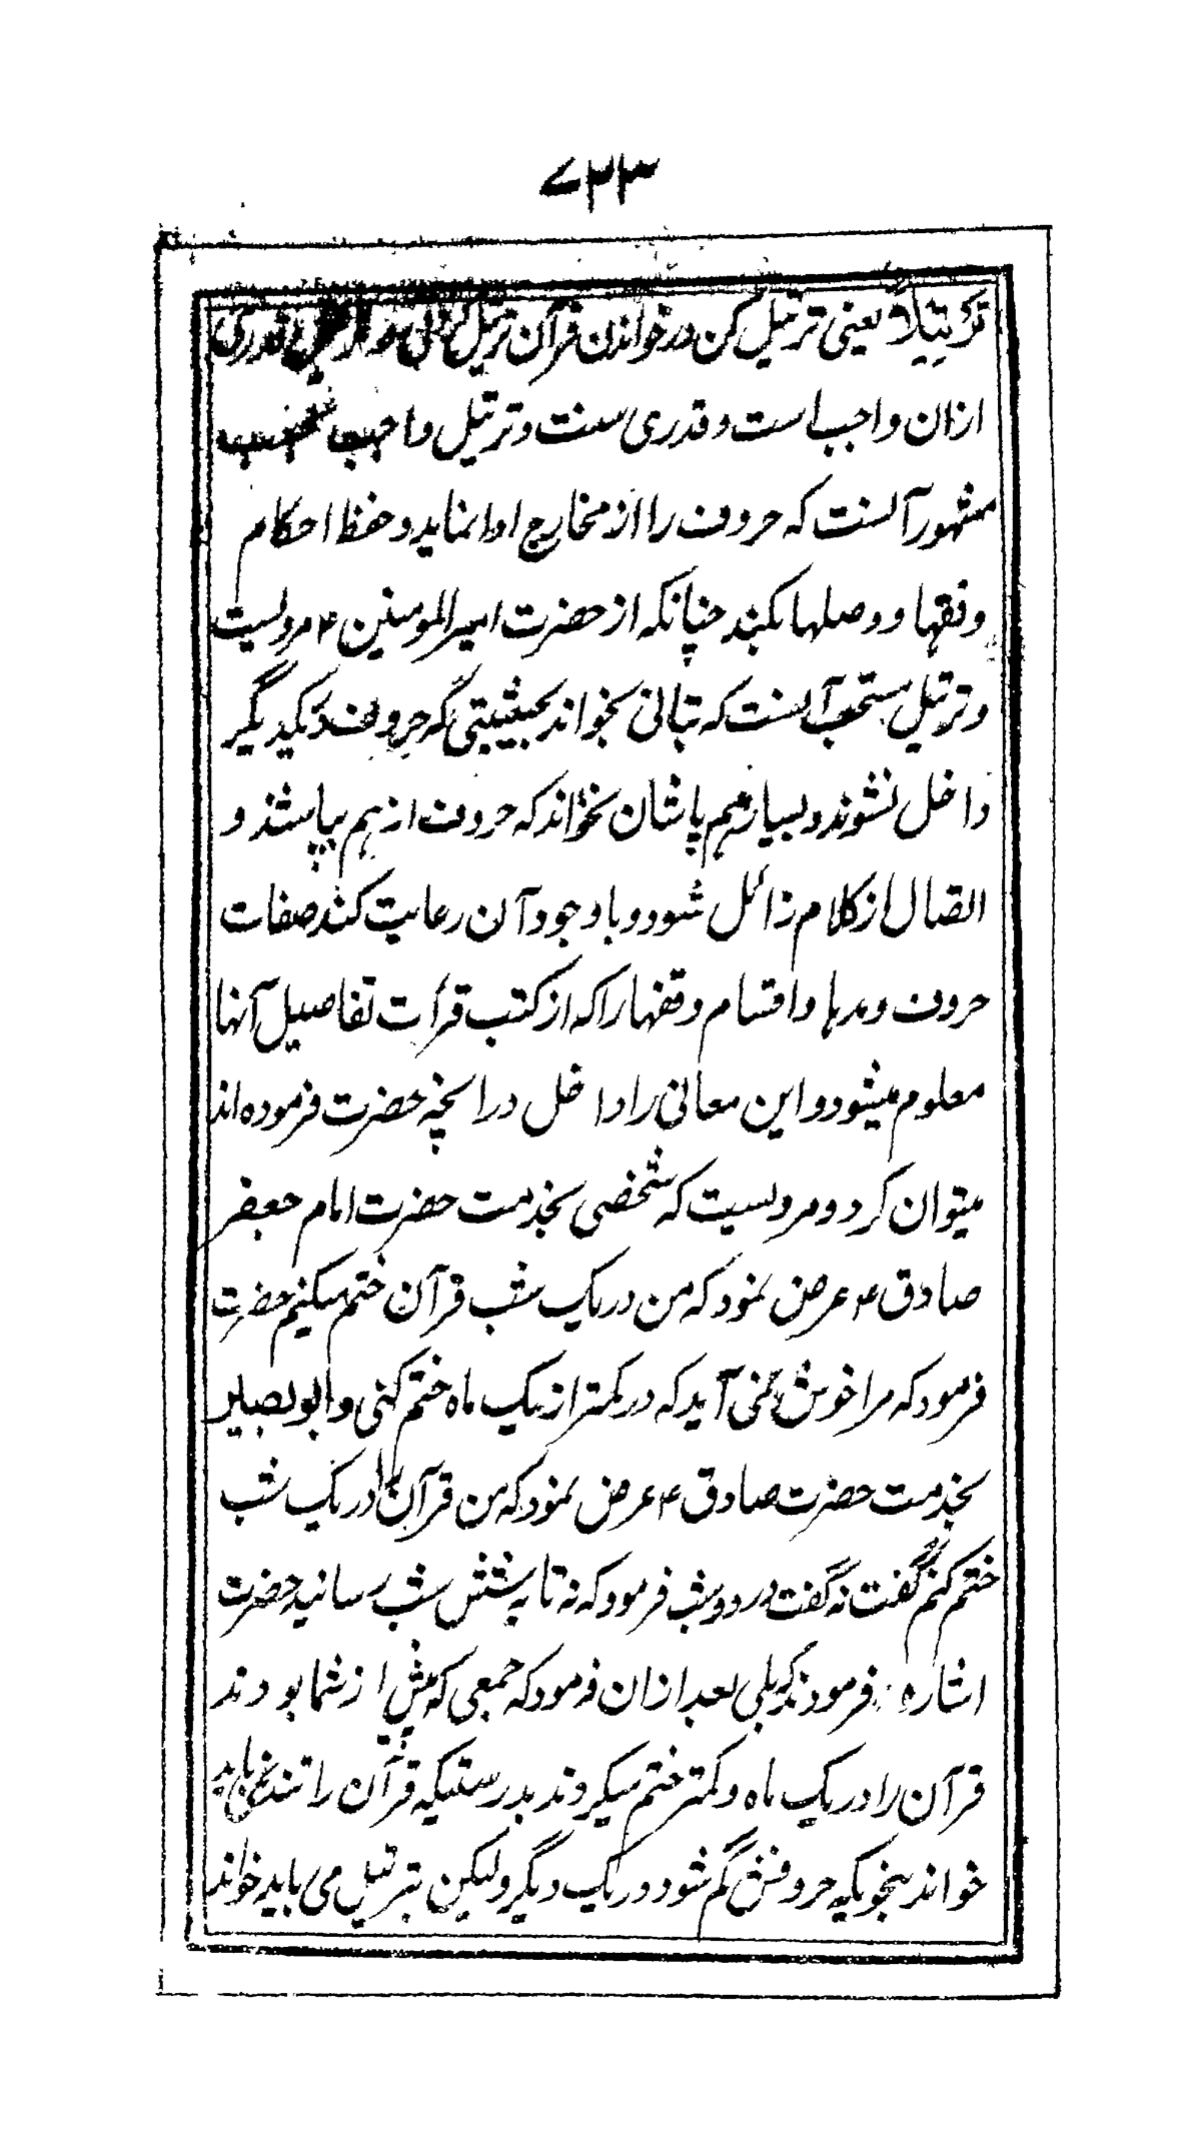 ۷۳۳
تَرْتِیْلاً یعنی ترتیل کن در خواندن قرآن ترتیل کردنی و ترتیل قدری
ازان واجب است و قدری سنت و ترتیل واجب
مشهور آنست که حروف را از مخارج ادا نماید و حفظ احکام
وقفها و وصلها بکند چنانکه از حضرت امیر المومنین ۴ مرویست
و ترتیل مستحب آنست که بتانی بخواند بحیثیتی که حروف دریکدیگر
داخل نشوند و بسیار هم پاشان نخواند که حروف از هم بپاشند و
اتصال از کلام زائل شود و با وجود آن رعایت کند صفات
حروف و مدها و اقسام وقفها را که از کتب قرأت تفاصیل آنها
معلوم میشود و این معانی را داخل در انچه حضرت فرموده‌اند
میتوان کرد و مرویست که شخصی بخدمت حضرت امام جعفر
صادق ۴ عرض نمود که من در یک شب قرآن ختم میکنم حضرت
فرمود که مرا خوش نمی آید که در کمتر از یک ماه ختم کنی و ابو بصیر
بخدمت حضرت صادق ۴ عرض نمود که من قرآن را در یک شب
ختم کنم گفت نه گفت در دو شب فرمود که نه تا به شش شب رسانید حضرت
اشاره فرمودند که بلی بعد ازان فرمود که جمعی که پیش از شما بودند
قرآن را در یک ماه و کمتر ختم میکردند بدرستیکه قرآن را تند نمی باید
خواند بنحویکه حروفش گم شود در یک دیگر ولیکن بترتیل می باید خواند